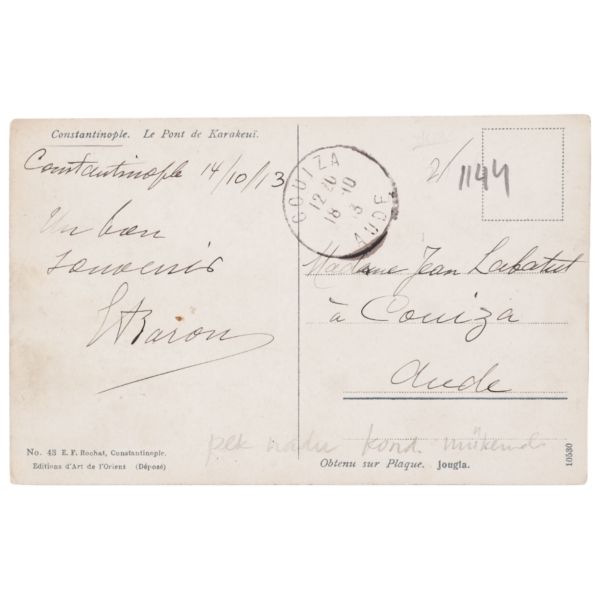 Constantinople. Le Pont de Karakeuï.
Constantinople 14/10/13
Un bon
souvenir
Baron
COUIZA
12 *26
18 -10
13
AUDE
2/
1144
Madame Jean Labatut
à Couiza
Aude
pek nadir kond. mükemel
No. 43 E. F. Rochat, Constantinople.
Editions d'Art de l'Orient (Déposé)
Obtenu sur Plaque. Jougla.
10530